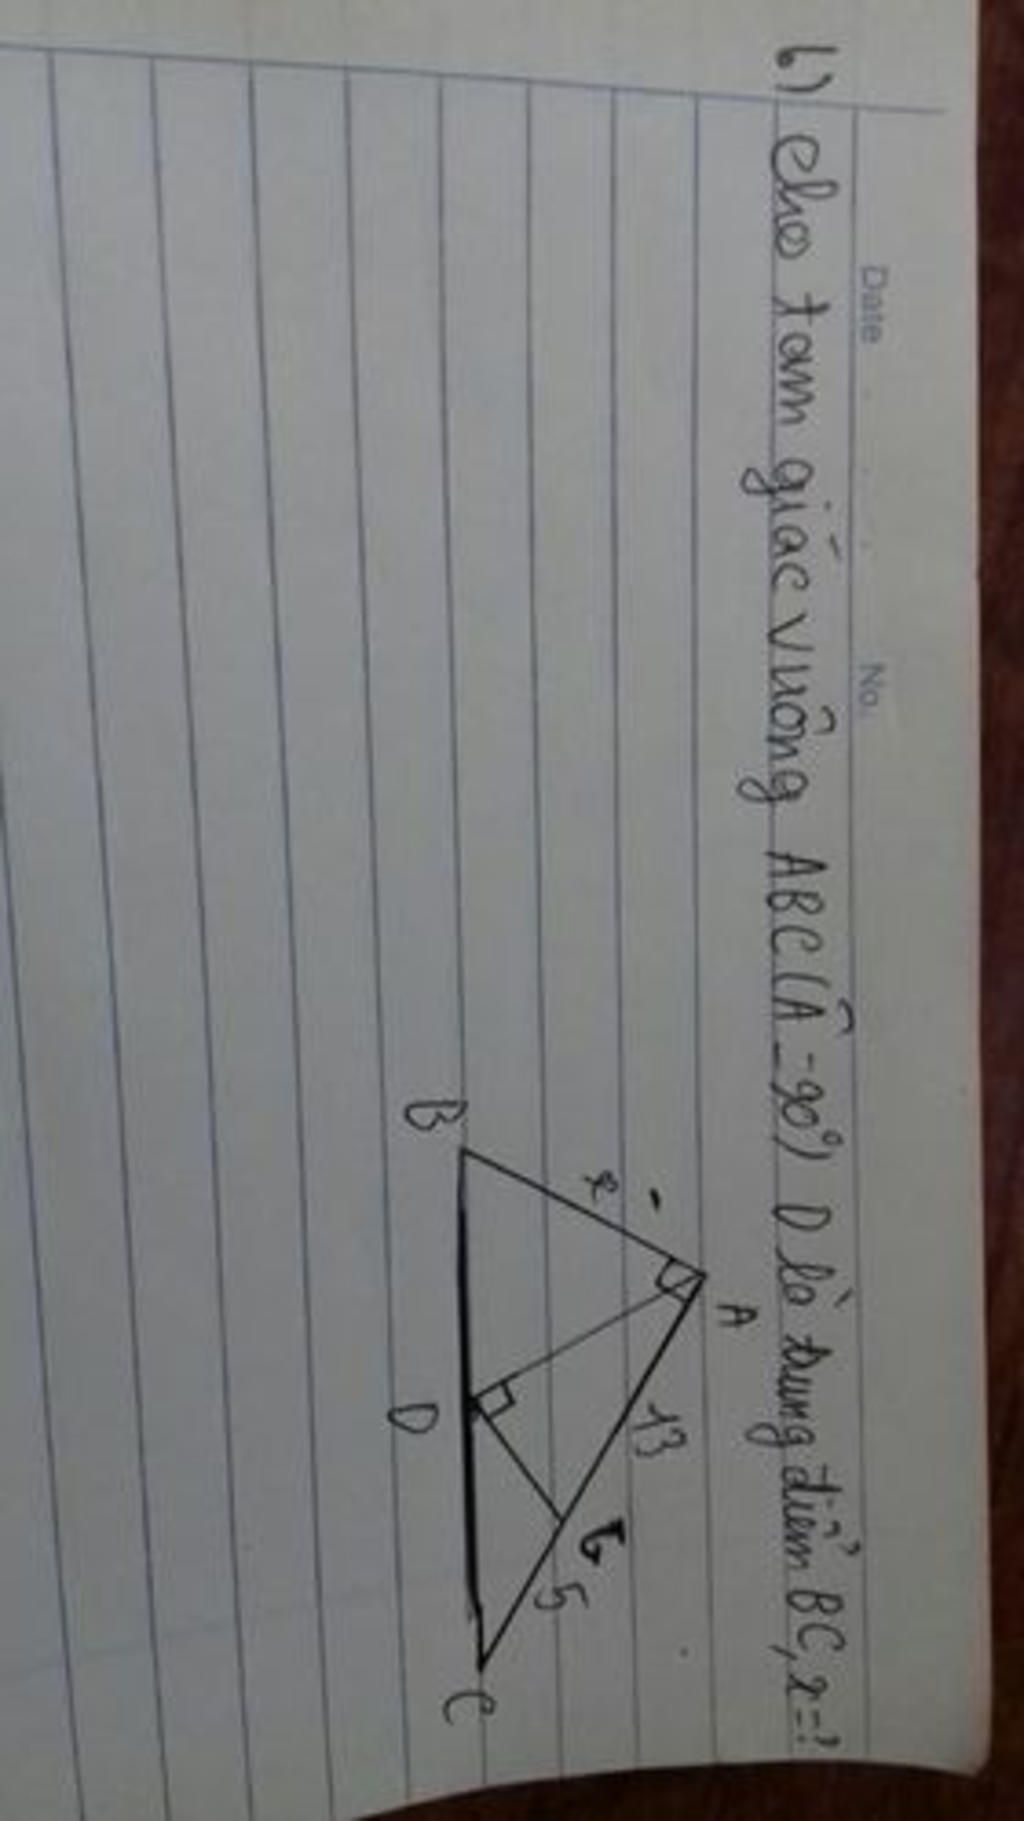 Date No.
b) Cho tam giác vuông ABC (Â = 90°) D là trung điểm BC, x = ?
A
x
13
5
B
D
C